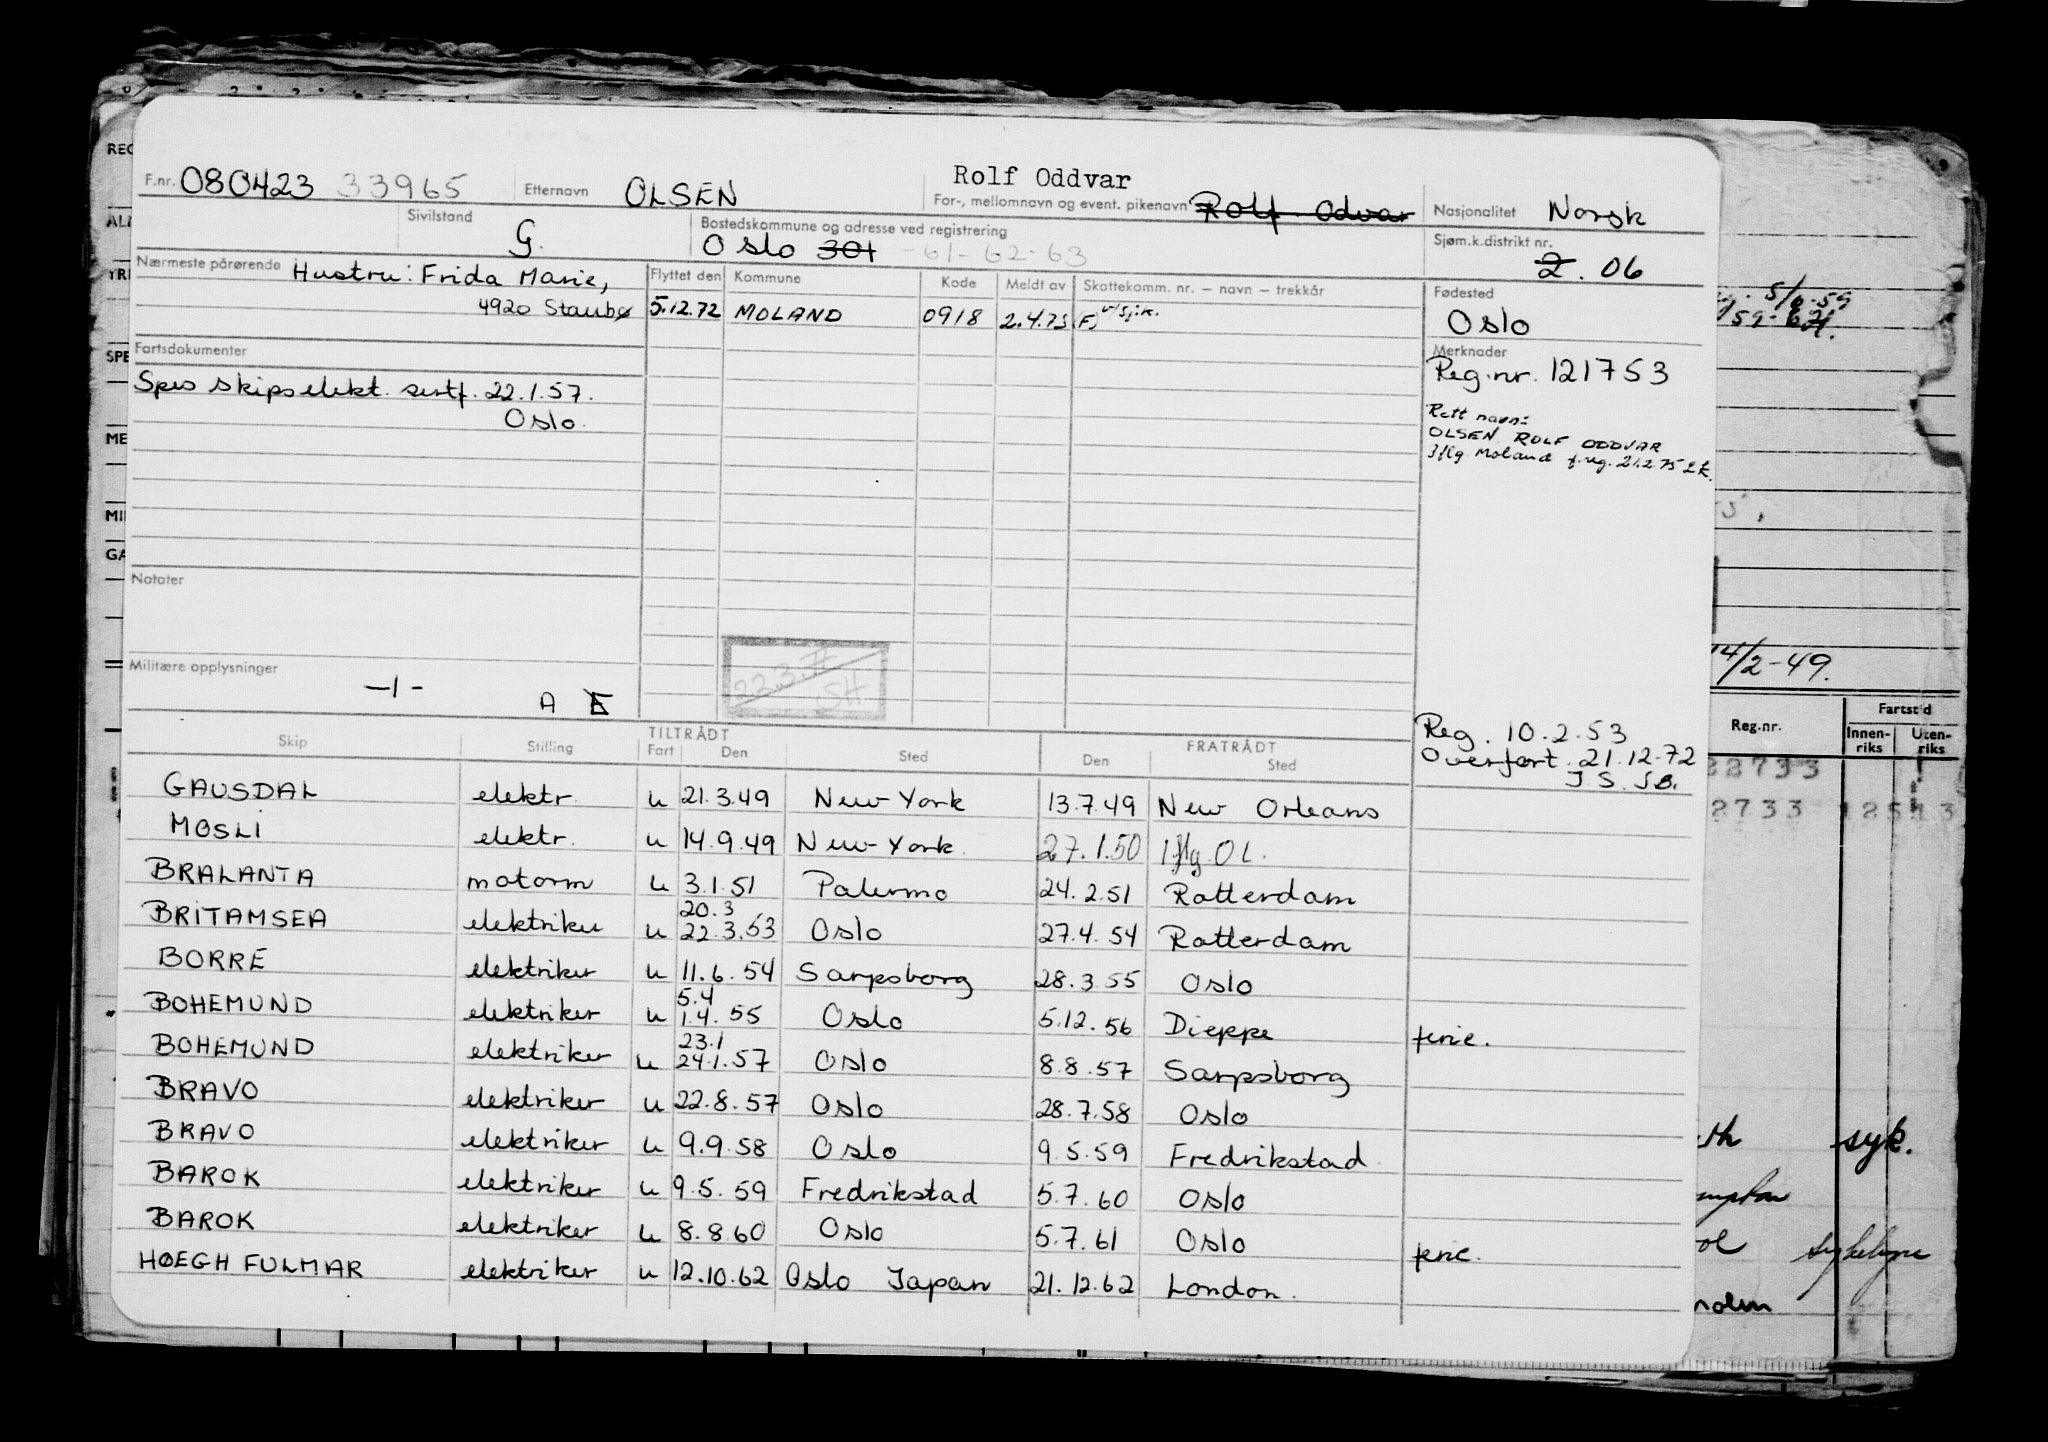 Rolf Oddvar
F.nr. 080423 33965 Etternavn OLSEN For-, mellomnavn og event. pikenavn Rolf Odvar Nasjonalitet Norsk
Sivilstand G. Bostedskommune og adresse ved registrering Oslo 301 -61-62-63 Sjøm.k.distrikt nr. 2. 06
Nærmeste pårørende Hustru: Frida Marie, Flyttet den Kommune Kode Meldt av Skattekomm. nr. — navn — trekkår Fødested
4920 Staubø 5.12.72 MOLAND 0918 2.4.73 Oslo
Fartsdokumenter Merknader
Reg.nr. 121753
Spes skipselekt. sertf. 22.1.57.
Oslo.
Rett navn:
OLSEN ROLF ODDVAR
Iflg Moland f.reg. 21.2.75
Notater
Militære opplysninger
-1- A E
22.3. SH
Reg. 10.2.53
Overført. 21.12.72
J S. SB.
Skip Stilling TILTRÅDT Fart Den Sted FRATRÅDT Den Sted
GAUSDAL elektr. u 21.3.49 New York 13.7.49 New Orleans
MOSLI elektr. u 14.9.49 New York 27.1.50 Iflg OL.
BRALANTA motorm u 3.1.51 Palermo 24.2.51 Rotterdam
20.3
BRITAMSEA elektriker u 22.3.53 Oslo 27.4.54 Rotterdam
BORRE elektriker u 11.6.54 Sarpsborg 28.3.55 Oslo
5.4
BOHEMUND elektriker u 1.4.55 Oslo 5.12.56 Dieppe ferie.
23.1
BOHEMUND elektriker u 24.1.57 Oslo 8.8.57 Sarpsborg
BRAVO elektriker u 22.8.57 Oslo 28.7.58 Oslo
BRAVO elektriker u 9.9.58 Oslo 9.5.59 Fredrikstad
BAROK elektriker u 9.5.59 Fredrikstad 5.7.60 Oslo
BAROK elektriker u 8.8.60 Oslo 5.7.61 Oslo ferie.
HØEGH FULMAR elektriker u 12.10.62 Oslo Japan 21.12.62 London.
REG
SPE
ME
GA
5/6-59
14/2-49.
Reg.nr. Fartstid
Innen-riks Uten-riks
22733
2733
syk.